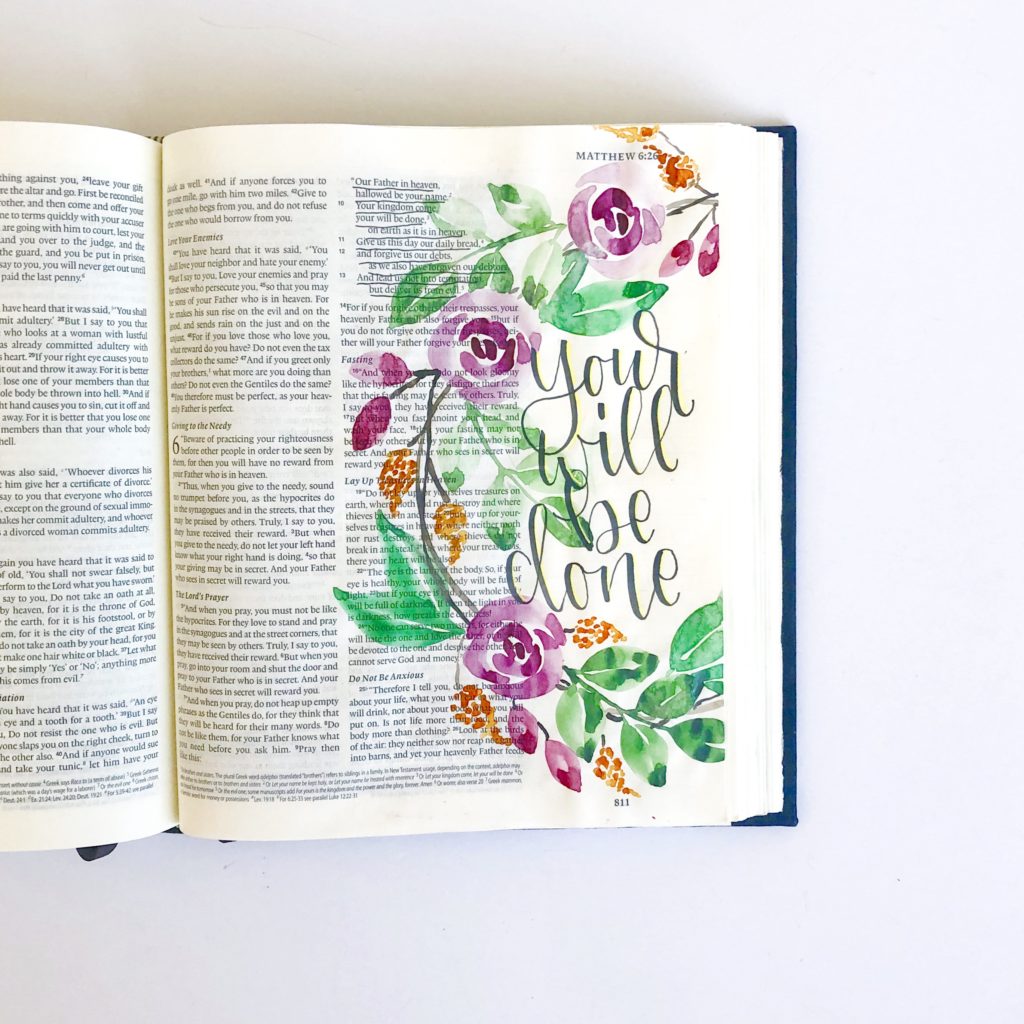 thing against you, 24leave your gift
re the altar and go. First be reconciled
rother, and then come and offer your
ne to terms quickly with your accuser
are going with him to court, lest your
and you over to the judge, and the
the guard, and you be put in prison,
say to you, you will never get out until
paid the last penny.
have heard that it was said, 'You shall
mmit adultery.' 28But I say to you that
who looks at a woman with lustful
as already committed adultery with
s heart. 29If your right eye causes you to
it out and throw it away. For it is better
lose one of your members than that
ole body be thrown into hell. 30And if
ht hand causes you to sin, cut it off and
away. For it is better that you lose one
members than that your whole body
hell.
was also said, 'Whoever divorces his
t him give her a certificate of divorce.'
say to you that everyone who divorces
, except on the ground of sexual immo-
akes her commit adultery, and whoever
s a divorced woman commits adultery.
gain you have heard that it was said to
of old, 'You shall not swear falsely, but
erform to the Lord what you have sworn.'
say to you, Do not take an oath at all,
by heaven, for it is the throne of God,
y the earth, for it is his footstool, or by
em, for it is the city of the great King.
do not take an oath by your head, for you
t make one hair white or black. 37Let what
y be simply 'Yes' or 'No'; anything more
his comes from evil.
iation
You have heard that it was said, 'An eye
eye and a tooth for a tooth.' 39But I say
, Do not resist the one who is evil. But
yone slaps you on the right cheek, turn to
he other also. 40And if anyone would sue
nd take your tunic, let him have your
cloak as well. 41And if anyone forces you to
go one mile, go with him two miles. 42Give to
the one who begs from you, and do not refuse
the one who would borrow from you.
Love Your Enemies
43"You have heard that it was said, 'You
shall love your neighbor and hate your enemy.'
44But I say to you, Love your enemies and pray
for those who persecute you, 45so that you may
be sons of your Father who is in heaven. For
he makes his sun rise on the evil and on the
good, and sends rain on the just and on the
unjust. 46For if you love those who love you,
what reward do you have? Do not even the tax
collectors do the same? 47And if you greet only
your brothers, what more are you doing than
others? Do not even the Gentiles do the same?
48You therefore must be perfect, as your heav-
enly Father is perfect.
Giving to the Needy
6 "Beware of practicing your righteousness
before other people in order to be seen by
them, for then you will have no reward from
your Father who is in heaven.
2"Thus, when you give to the needy, sound
no trumpet before you, as the hypocrites do
in the synagogues and in the streets, that they
may be praised by others. Truly, I say to you,
they have received their reward. 3But when
you give to the needy, do not let your left hand
know what your right hand is doing, 4so that
your giving may be in secret. And your Father
who sees in secret will reward you.
The Lord's Prayer
5"And when you pray, you must not be like
the hypocrites. For they love to stand and pray
in the synagogues and at the street corners, that
they may be seen by others. Truly, I say to you,
they have received their reward. 6But when you
pray, go into your room and shut the door and
pray to your Father who is in secret. And your
Father who sees in secret will reward you.
7"And when you pray, do not heap up empty
phrases as the Gentiles do, for they think that
they will be heard for their many words. 8Do
not be like them, for your Father knows what
you need before you ask him. 9Pray then
like this:
MATTHEW 6:26
"Our Father in heaven,
hallowed be your name.
10 Your kingdom come,
your will be done,
on earth as it is in heaven.
11 Give us this day our daily bread,
12 and forgive us our debts,
as we also have forgiven our debtors.
13 And lead us not into temptation,
but deliver us from evil.
14For if you forgive others their trespasses, your
heavenly Father will also forgive you, 15but if
you do not forgive others their trespasses, nei-
ther will your Father forgive your
Fasting
16"And when you do not look gloomy
like the hypocrites, for they disfigure their faces
that their fasting may be seen by others. Truly,
I say to you, they have received their reward.
17But when you fast, anoint your head and
wash your face, 18that your fasting may not
be seen by others but by your Father who is in
secret. And your Father who sees in secret will
reward you.
Lay Up Treasures in Heaven
19"Do not lay up yourselves treasures on
earth, where moth and rust destroy and where
thieves break in and steal, 20but lay up for your-
selves treasures in heaven, where neither moth
nor rust destroys and where thieves do not
break in and steal. 21For where your treasure is,
there your heart will be also.
22"The eye is the lamp of the body. So, if your
eye is healthy, your whole body will be full of
light, 23but if your eye is bad, your whole body
will be full of darkness. If then the light in you
is darkness, how great is the darkness!
24"No one can serve two masters, for either he
will hate the one and love the other, or he will
be devoted to the one and despise the other. You
cannot serve God and money.
Do Not Be Anxious
25"Therefore I tell you, do not be anxious
about your life, what you will eat or what you
will drink, nor about your body, what you will
put on. Is not life more than food, and the
body more than clothing? 26Look at the birds
of the air: they neither sow nor reap nor gather
into barns, and yet your heavenly Father feeds
your
will
be
done
811